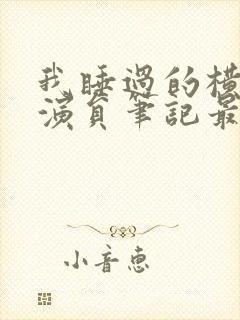 我睡過的橫
演員筆記最
小音惠